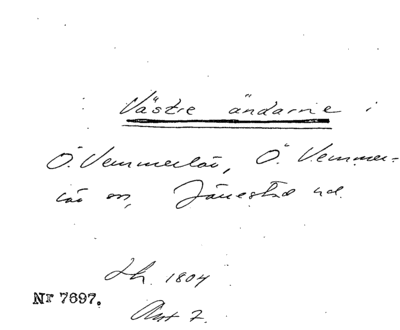 Västre ändarne i
Ö. Vemmerlöv, Ö. Vemmer-
löv sn, Järrestad hd.
Lh. 1804
Nr 7697.
Akt 7.